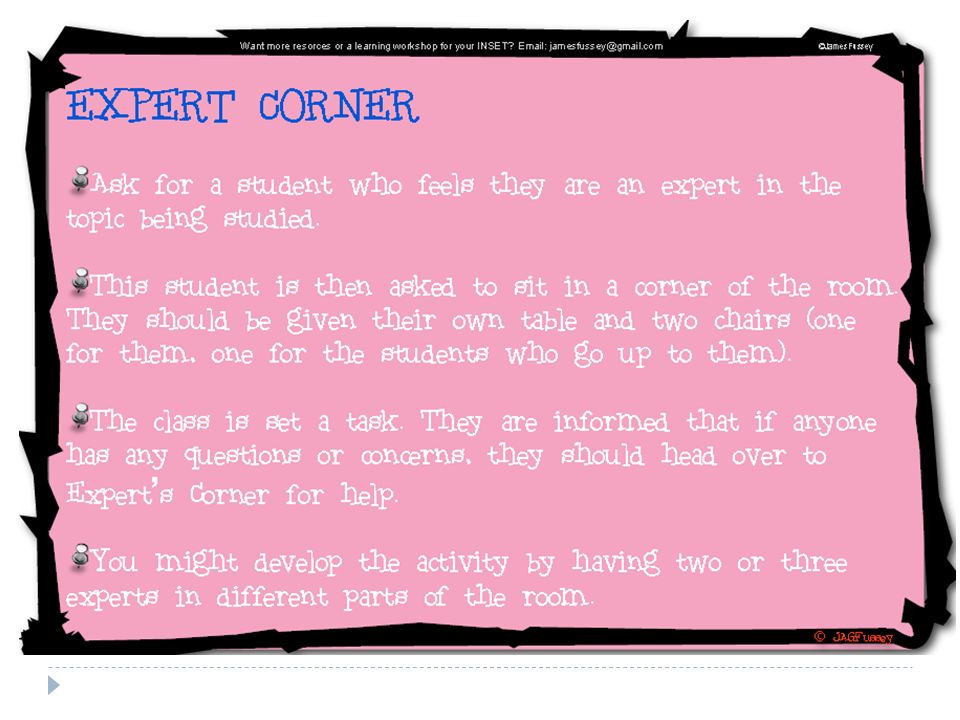 Want more resorces or a learning workshop for your INSET? Email: jamesfussey@gmail.com ©James Fussey
EXPERT CORNER
Ask for a student who feels they are an expert in the
topic being studied.
This student is then asked to sit in a corner of the room.
They should be given their own table and two chairs (one
for them, one for the students who go up to them).
The class is set a task. They are informed that if anyone
has any questions or concerns, they should head over to
Expert's Corner for help.
You might develop the activity by having two or three
experts in different parts of the room.
© JAGFussey